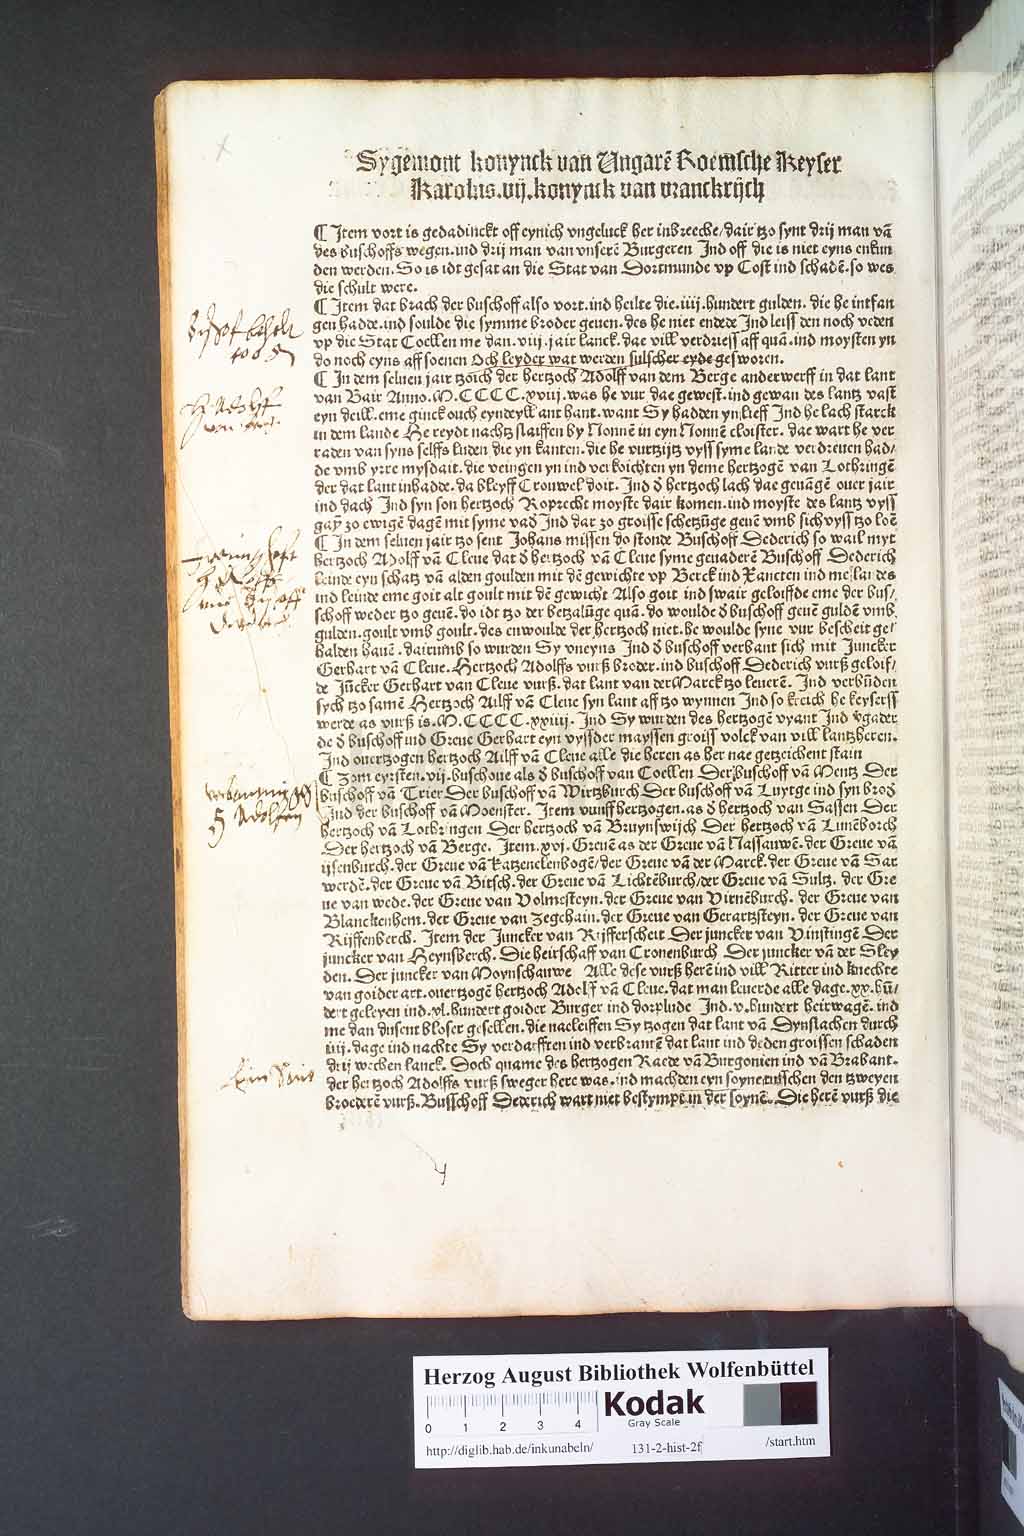 Sygemont konynck van Ungarē Roemsche Keyser
Karolus.vij.konynck van vranckrijch
¶ Item vort is gedadinckt off eynich vngeluck her inbreeche/dair tzo synt drij man vā
des buschoffs wegen.ind drij man van vnserē Burgeren Ind off die is niet eyns enkun
den werden. So is idt gesat an die Stat van Dortmunde vp Cost ind schadē.so wes
die schult were.
¶ Item dat brach der buschoff also vort.ind heilte die.iiij.hundert gulden. die he intfan
gen hadde.ind soulde die symme broder geuen.des he niet endede Ind leiss den noch veden
vp die Stat Coellen me dan.viij.jair lanck.dae vill verdriess aff quā.ind moysten yn
do noch eyns aff soenen Och leyder wat werden fulscher eyde gesworen.
¶ In dem seluen jair tzoich der hertzoch Adolff van dem Berge anderwerff in dat lant
van Bair Anno.M.CCCC.xviij.was he vur dae gewest.ind gewan des lantz vast
eyn deill.eme ginck ouch eyndeyll ant hant.want Sy hadden yn lieff Ind he lach starck
in dem lande He reydt nachtz slaiffen by Nonnē in eyn Nonnē cloister. dae wart he ver
raden van syns selffs luden die yn kanten.die he vurtzijtz vyss syme lande verdreuen had/
de vmb yrre mysdait.die veingen yn ind verkoichten yn deme hertzogē van Lothringē
der dat lant inhadde.da bleyff Crouwel doit. Ind d hertzoch lach dae geuāgē ouer jair
ind dach Ind syn son hertzoch Roprecht moyste dair komen.ind moyste des lantz vyss
gaÿ zo ewigē dagē mit syme vad Ind dar zo groisse schetzūge geuē vmb sich vyss tzo loē
¶ In dem seluen jair tzo sent Johans missen do stonde Buschoff Dederich so wail myt
hertzoch Adolff vā Cleue dat d hertzoch vā Cleue syme geuaderē Buschoff Dederich
leinde eyn schatz vā alden goulden mit dē gewichte vp Berck ind Xancten ind me landes
ind leinde eme goit alt goult mit dē gewicht Also goit ind swair geloiffde eme der bus/
schoff weder tzo geuē.do idt tzo der betzalūge quā.do woulde d buschoff geuē guldē vmb
gulden.goult vmb goult.des enwoulde der hertzoch niet.he woulde syne vur bescheit ge/
halden hauē.dairumb so wurden Sy vneyns Ind d buschoff verbant sich mit Juncker
Gerhart vā Cleue.Hertzoch Adolffs vurß broder.ind buschoff Dederich vurß geloif/
de Jūcker Gerhart van Cleue vurß.dat lant van der Marck tzo leuerē. Ind verbūden
sych tzo samē Hertzoch Ailff vā Cleue syn lant aff tzo wynnen Ind so kreich he keyserss
werde as vurß is.M.CCCC.xxiiij. Ind Sy wurden des hertzogē vyant Ind vgader
de d buschoff ind Greue Gerhart eyn vyssder mayssen groiss volck van vill lantzheren.
Ind ouertzogen hertzoch Ailff vā Cleue alle die heren as her nae getzeichent stain
¶ Zom eyrsten.vij.buschoue als d buschoff van Coellen Der buschoff vā Mentz Der
buschoff vā Trier Der buschoff vā Wirtzburch Der buschoff vā Luytge ind syn brod
Ind der buschoff vā Moenster. Item vunff hertzogen.as d hertzoch van Sassen Der
hertzoch vā Lothringen Der hertzoch vā Bruynswijch Der hertzoch vā Lunēborch
Der hertzoch vā Berge. Item.xvj.Greuē as der Greue vā Nassauwē.der Greue vā
ijsenburch.der Greue vā katzenelenbogē/der Greue vā der Marck.der Greue vā Sar
werdē.der Greue vā Bitsch.der Greue vā Lichtēburch/der Greue vā Sultz. der Gre
ue van wede.der Greue van Volmesteyn.der Greue van Virnēburch. der Greue van
Blanckenhem.der Greue van Zegehain.der Greue van Gerartzsteyn. der Greue van
Rijffenberch. Item der Juncker van Reifferscheit Der juncker van Vinstingē Der
juncker van Heynsberch. Die heirschaff van Cronenburch Der juncker vā der Sley
den. Der juncker van Moynschauwe Alle dese vurß herē ind vill Ritter ind knechte
van goider art.ouertzogē hertzoch Adolff vā Cleue.dat man leuerde alle dage.xx.hū/
dert geleyen ind.xl.hundert goider Burger ind dorplude Ind.v.hundert heirwagē.ind
me dan dusent bloser gesellen.die naeleiffen Sy tzogen dat lant vā Dynslachen durch
iiij.dage ind nachte Sy verdarfften ind verbrantē dat lant ind deden groissen schaden
drij wechen lanck. Doch quame des hertzogen Raede vā Burgonien ind vā Brabant.
der hertzoch Adolffs vurß sweger here was.ind machden eyn soyne tusschen den tzweyen
broederē vurß.Busschoff Dederich wart niet bestympt in der soynē. Die herē vurß die
Herzog August Bibliothek Wolfenbüttel
0 1 2 3 4
Kodak
Gray Scale
http://diglib.hab.de/inkunabeln/ 131-2-hist-2f /start.htm